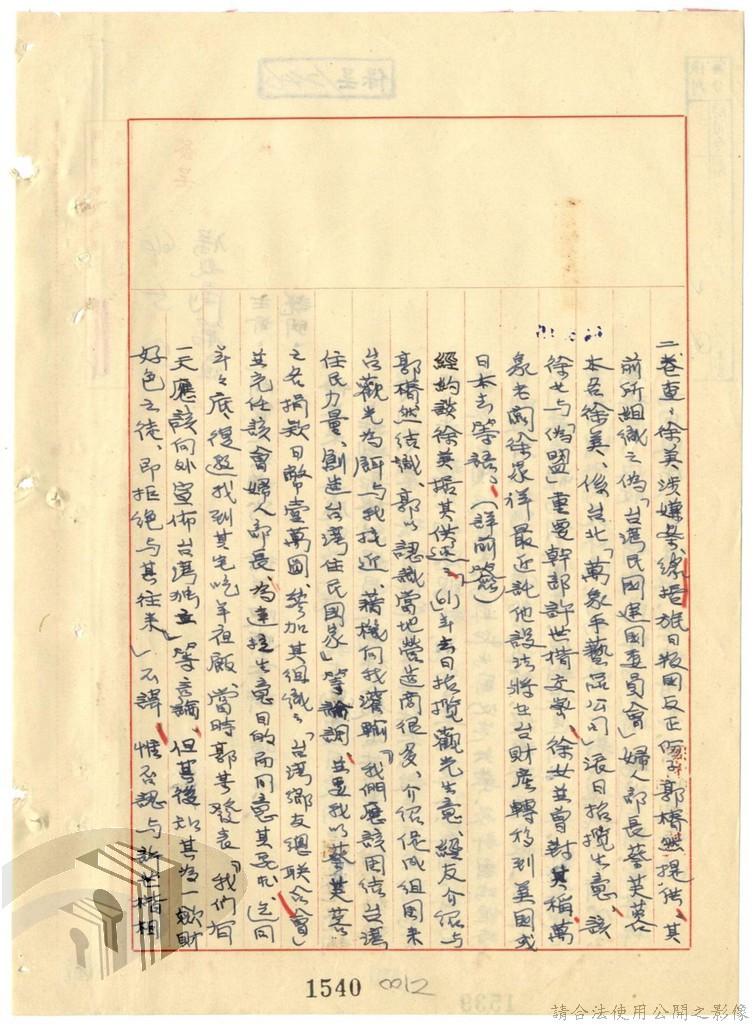 二卷查:徐英涉嫌案,緣據旅日叛國反正 郭椿然提供,其
前所組織之偽「台灣民國建國委員會」婦人部長蔡芙蓉
本名徐美、係台北「萬象手藝品公司」派日招攬生意、該
徐女与「偽盟」重要幹部許世楷交密、徐女並曾對其稱,萬
象老闆徐家祥最近託他設法將在台財產轉移到美國或
日本去等語。(詳前簽)
經約談徐英据其供述:61年去日招攬觀光生意、經友介紹与
郭椿然結識,郭以認識當地營造商很多、介紹促成組團來
台觀光為餌与我接近、藉機向我灌輸「我們應該團結台灣
住民力量、創造台灣住民國家」等論調,並要我以蔡芙蓉
之名捐款日幣壹萬圓、參加其組織之「台灣鄉友總聯合會」
並充任該會婦人部長、為達拉生意目的而同意其要求、迄同
年年底復邀我到其宅吃年夜飯、當時郭某發表「我們有
一天應該向外宣佈台灣獨立」等言論、但其後知其為一歛財
好色之徒、即拒絕与其往來」不諱,惟否認与許世楷相
1540 0012
請合法使用公開之影像